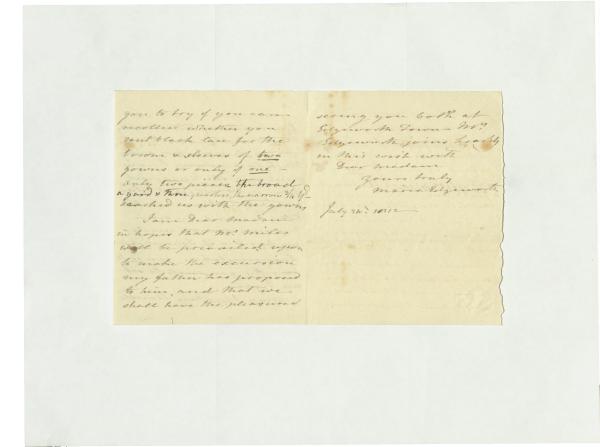 you to try if you can
recollect whether you
sent black lace for the
bosom & sleeves of two
gowns or only of one –
only two pieces the broad
a yard & three quarters, the narrow
reached us with the gowns
I am Dear Madam
in hopes that Mr. Miles
will be prevailed upon
to make the excursion
my father has proposed
to him, and that we
shall have the pleasure of
seeing you both at
Edgeworth Town – Mrs.
Edgeworth joins
in this wish with
Dear madam
Yours truly
Maria Edgeworth
July 24th. 1812